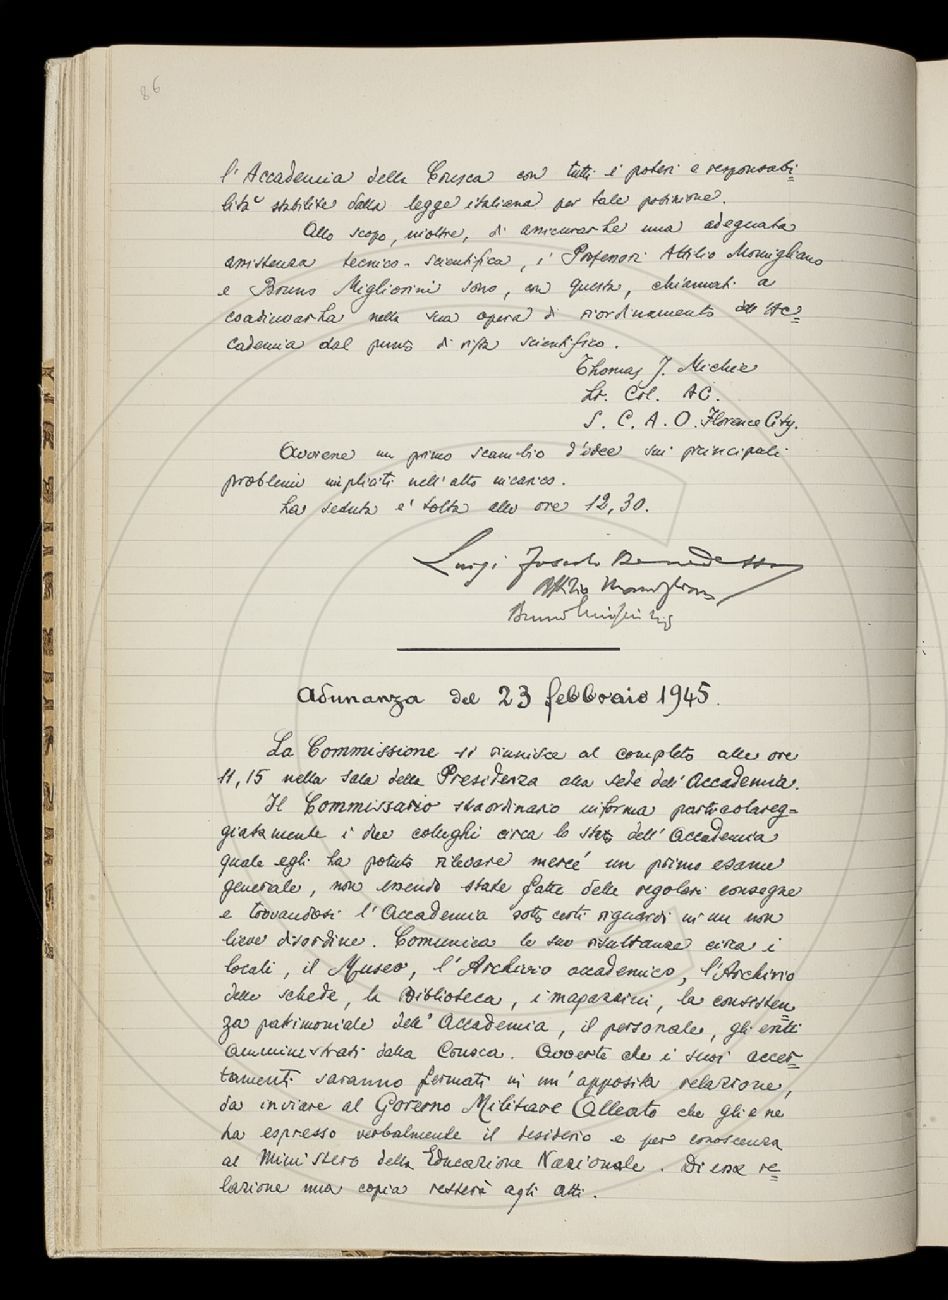 86
l'Accademia della Crusca con tutti i poteri e responsabi=
lità stabilite dalla legge italiana per tale posizione.
Allo scopo, inoltre, di assicurarLe una adeguata
assistenza tecnico-scientifica, i Professori Attilio Momigliano
e Bruno Migliorini sono, con questa, chiamati a
coadiuvarLa nella sua opera di riordinamento dell'Ac=
cademia dal punto di vista scientifico.
Thomas J. Michie
Lt. Col. AC.
S. C. A. O. Florence City.
Avviene un primo scambio d'idee sui principali
problemi impliciti nell'alto incarico.
La seduta è tolta alle ore 12,30.
Luigi Foscolo Benedetto
Attilio Momigliano
Bruno Migliorini
Adunanza del 23 febbraio 1945.
La Commissione si riunisce al completo alle ore
11,15 nella sala della Presidenza alla sede dell'Accademia.
Il Commissario straordinario informa particolareg=
giatamente i due colleghi circa lo stato dell'Accademia
quale egli ha potuto rilevare mercé un primo esame
generale, non essendo state fatte delle regolari consegne
e trovandosi l'Accademia sotto certi riguardi in un non
lieve disordine. Comunica le sue risultanze circa i
locali, il Museo, l'Archivio accademico, l'Archivio
delle schede, la Biblioteca, i magazzini, la consisten=
za patrimoniale dell'Accademia, il personale, gli enti
amministrati dalla Crusca. Avverte che i suoi accer=
tamenti saranno fermati in un'apposita relazione,
da inviare al Governo Militare Alleato che gliene
ha espresso verbalmente il desiderio e per conoscenza
al Ministero della Educazione Nazionale. Di essa re=
lazione una copia resterà agli atti.